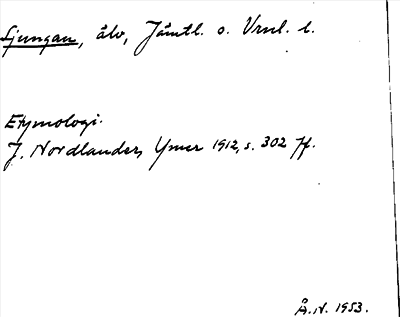 Ljungan, älv, Jämtl. o. Vrnl. l.
Etymologi.
J. Nordlander, Ymer 1912, s. 302 ff.
Å. N. 1953.